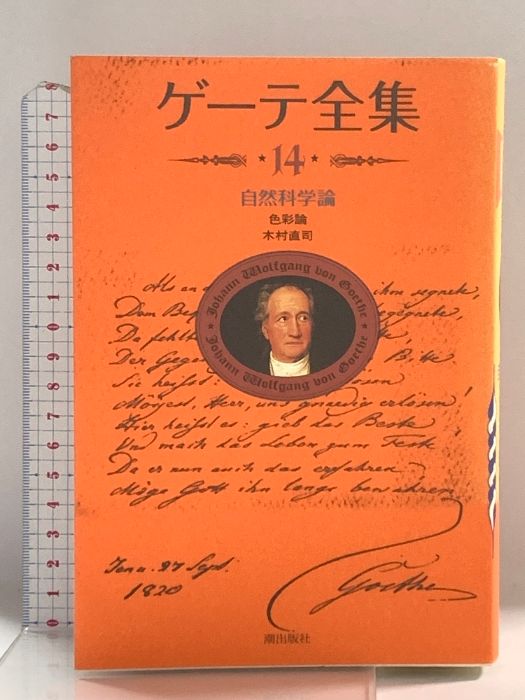 ゲーテ全集
14
自然科学論
色彩論
木村直司
Johann Wolfgang von Goethe
Johann Wolfgang von Goethe
Als an ihm segnete,
Dem
Da fehlt
Der Gegen Bitte
Sie heisst:
Mörgest, Herr, uns gnaedig erlösen!
Hier heisst es: gieb das Beste
Und mach das Leben zum Fest
Da er nun auch das erfahren
Möge Gott ihn lange bewahren
Jena. 27 Sept.
1820
Goethe
潮出版社
0 1 2 3 4 5 6 7 8 9 0 1 2 3 4 5 6 7 8